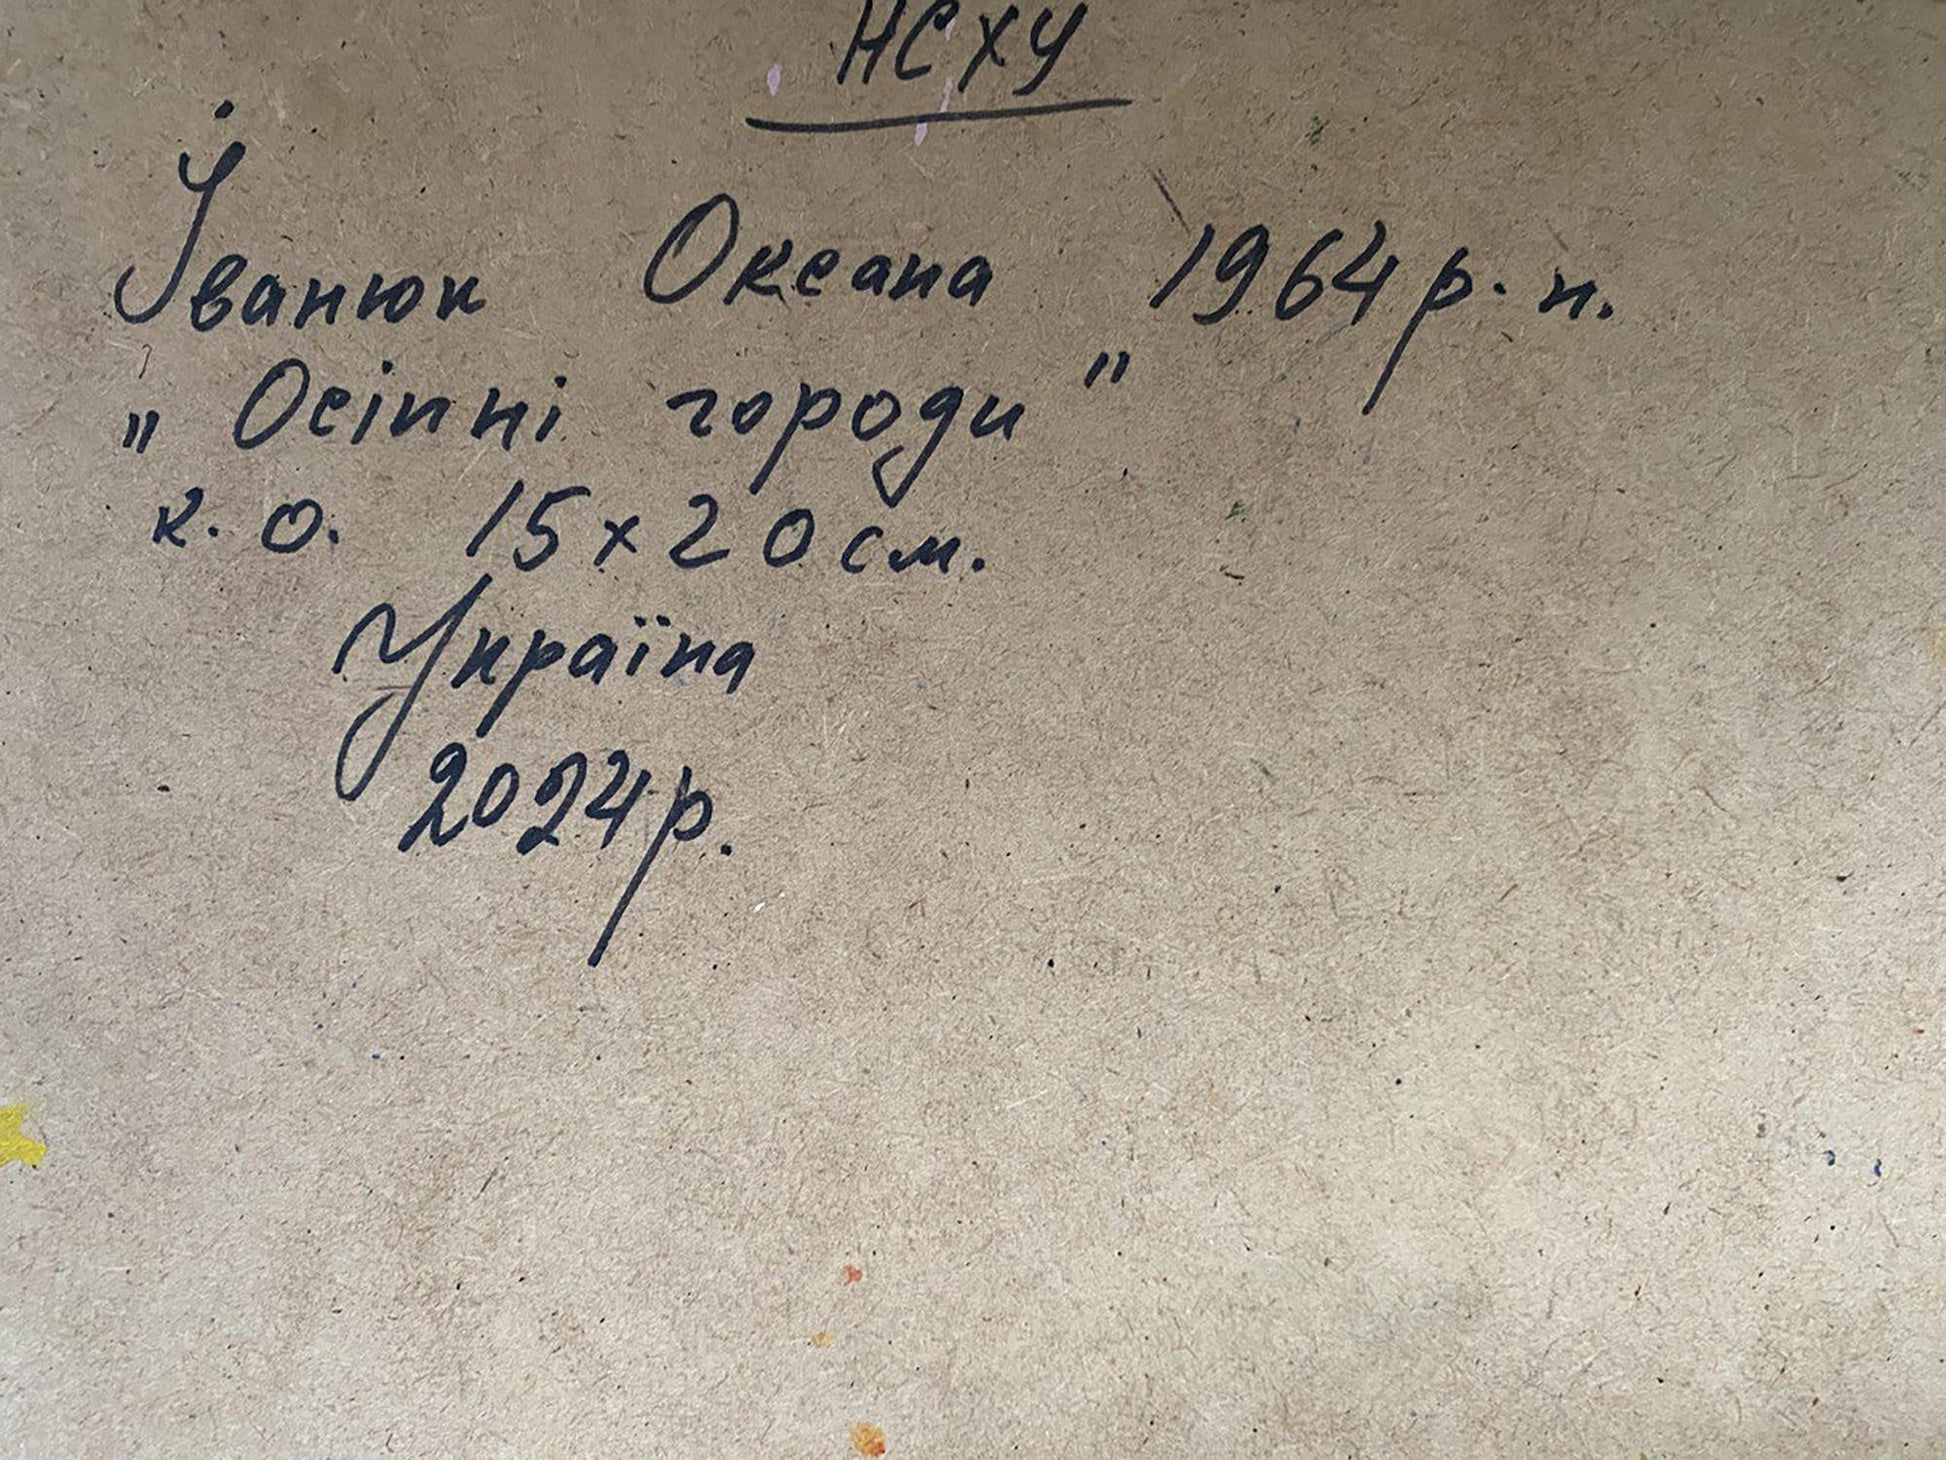 НСХУ
Іванюк Океана 1964 р. н.
„Осінні городи"
к. о. 15х20 см.
Україна
2024 р.